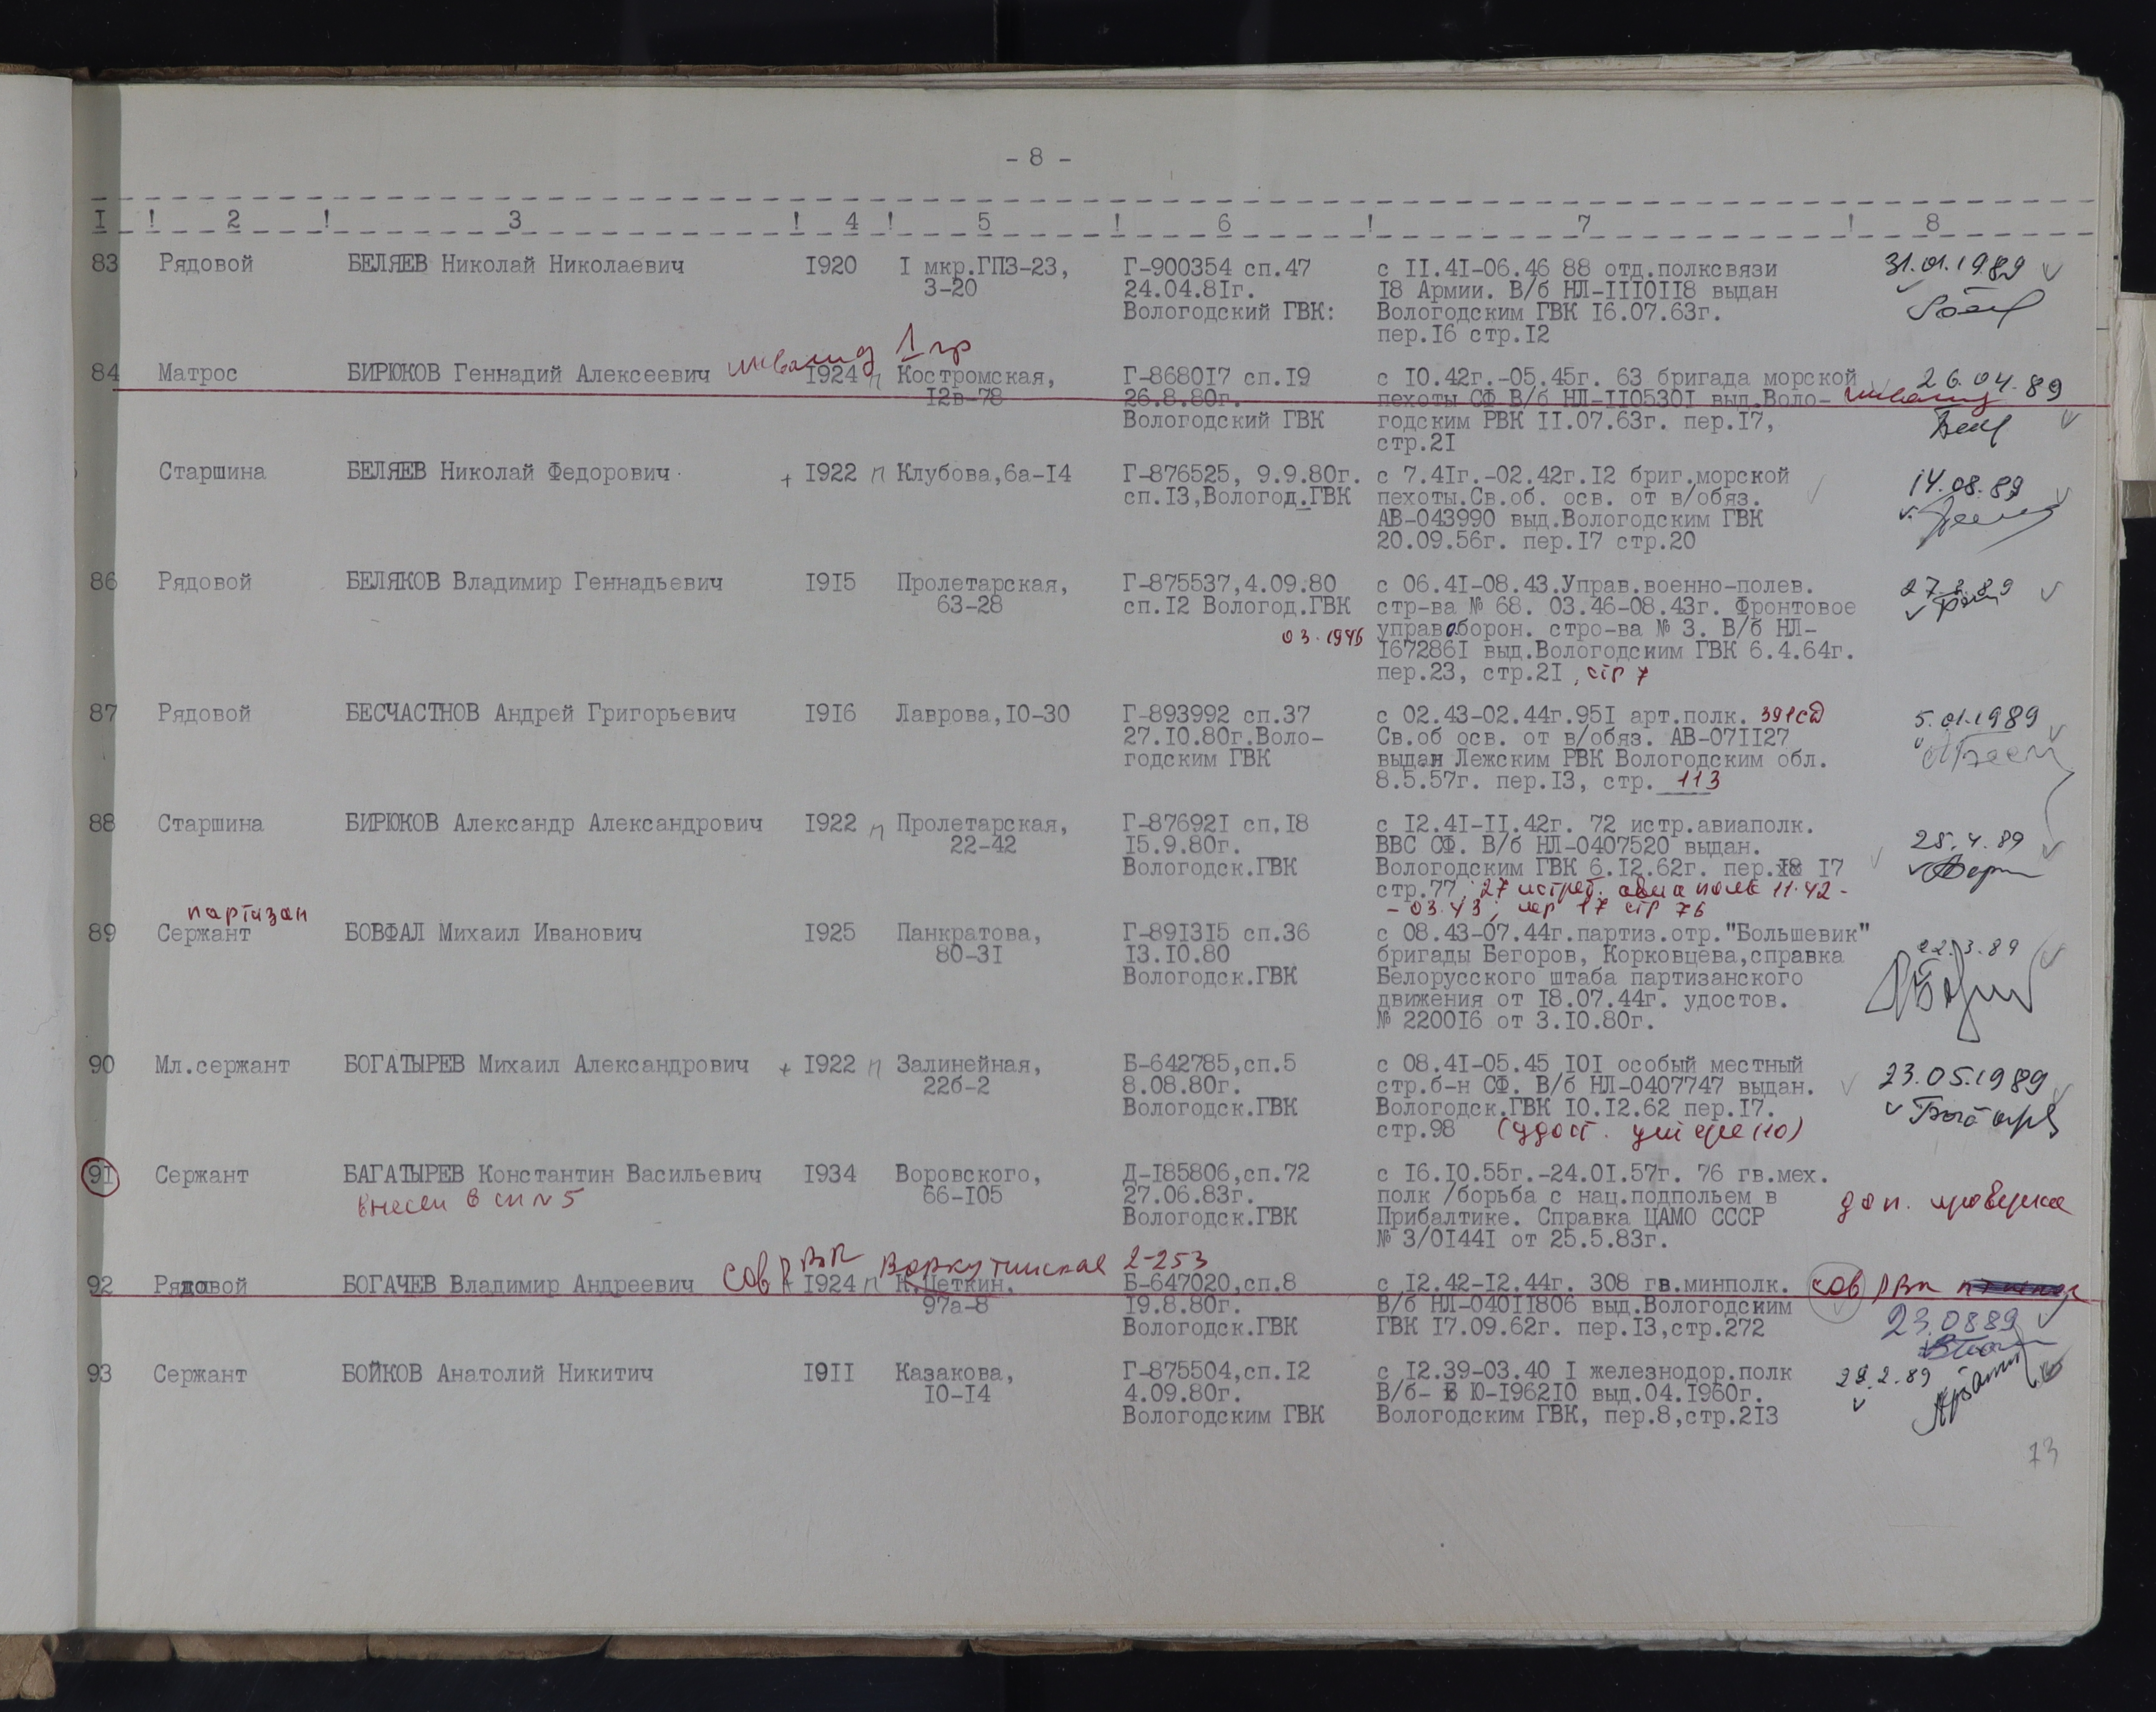 - 8 -
I ! 2 ! 3 ! 4 ! 5 ! 6 ! 7 ! 8
83 Рядовой БЕЛЯЕВ Николай Николаевич I920 I мкр.ГПЗ-23, Г-900354 сп.47 с II.4I-06.46 88 отд.полксвязи 31.01.1989
3-20 24.04.8Iг. I8 Армии. В/б НЛ-IIIOII8 выдан
Вологодский ГВК: Вологодским ГВК I6.07.63г.
пер.I6 стр.I2
инвалид 1 гр
84 Матрос БИРЮКОВ Геннадий Алексеевич I924 п Костромская, Г-8680I7 сп.I9 с I0.42г.-05.45г. 63 бригада морской 26.04.89
I2в-78 26.8.80г. пехоты СФ В/б НЛ-II0530I выд.Воло- инвалид
Вологодский ГВК годским РВК II.07.63г. пер.I7,
стр.2I
Старшина БЕЛЯЕВ Николай Федорович + I922 п Клубова,6а-I4 Г-876525, 9.9.80г. с 7.4Iг.-02.42г.I2 бриг.морской 14.08.89
сп.I3,Вологод.ГВК пехоты.Св.об. осв. от в/обяз.
АВ-043990 выд.Вологодским ГВК
20.09.56г. пер.I7 стр.20
86 Рядовой БЕЛЯКОВ Владимир Геннадьевич I9I5 Пролетарская, Г-875537,4.09.80 с 06.4I-08.43.Управ.военно-полев.
63-28 сп.I2 Вологод.ГВК стр-ва № 68. 03.46-08.43г. Фронтовое
03.1946 управ.оборон. стро-ва № 3. В/б НЛ-
I67286I выд.Вологодским ГВК 6.4.64г.
пер.23, стр.2I, стр 7
87 Рядовой БЕСЧАСТНОВ Андрей Григорьевич I9I6 Лаврова,I0-30 Г-893992 сп.37 с 02.43-02.44г.95I арт.полк. 391сд 5.01.1989
27.I0.80г.Воло- Св.об осв. от в/обяз. АВ-07II27
годским ГВК выдан Лежским РВК Вологодским обл.
8.5.57г. пер.I3, стр. 113
88 Старшина БИРЮКОВ Александр Александрович I922 п Пролетарская, Г-87692I сп.I8 с I2.4I-II.42г. 72 истр.авиаполк.
22-42 I5.9.80г. ВВС СФ. В/б НЛ-0407520 выдан. 25.4.89
Вологодск.ГВК Вологодским ГВК 6.I2.62г. пер.I8 I7
стр.77, 27 истреб. авиаполк 11.42-
партизан - 03.43, пер 17 стр 76
89 Сержант БОВФАЛ Михаил Иванович I925 Панкратова, Г-89I3I5 сп.36 с 08.43-07.44г.партиз.отр."Большевик" 22.3.89
80-3I I3.I0.80 бригады Бегоров, Корковцева,справка
Вологодск.ГВК Белорусского штаба партизанского
движения от I8.07.44г. удостов.
№ 2200I6 от 3.I0.80г.
90 Мл.сержант БОГАТЫРЕВ Михаил Александрович + I922 п Залинейная, Б-642785,сп.5 с 08.4I-05.45 I0I особый местный 23.05.1989
22б-2 8.08.80г. стр.б-н СФ. В/б НЛ-0407747 выдан.
Вологодск.ГВК Вологодск.ГВК I0.I2.62 пер.I7.
стр.98 (удост.
91 Сержант БАГАТЫРЕВ Константин Васильевич I934 Воровского, Д-I85806,сп.72 с I6.I0.55г.-24.0I.57г. 76 гв.мех.
внесен в сп №5 66-I05 27.06.83г. полк /борьба с нац.подпольем в доп. проверка
Вологодск.ГВК Прибалтике. Справка ЦАМО СССР
№ 3/0I44I от 25.5.83г.
сов РВК Воркутинская 2-253
92 Рядовой БОГАЧЕВ Владимир Андреевич I924 п К.Цеткин, Б-647020,сп.8 с I2.42-I2.44г. 308 гв.минполк. сов РВК
97а-8 I9.8.80г. В/б НЛ-040II806 выд.Вологодским 23.0889
Вологодск.ГВК ГВК I7.09.62г. пер.I3,стр.272
93 Сержант БОЙКОВ Анатолий Никитич I9II Казакова, Г-875504,сп.I2 с I2.39-03.40 I железнодор.полк
I0-I4 4.09.80г. В/б- Б Ю-I962I0 выд.04.I960г.
Вологодским ГВК Вологодским ГВК, пер.8,стр.2I3